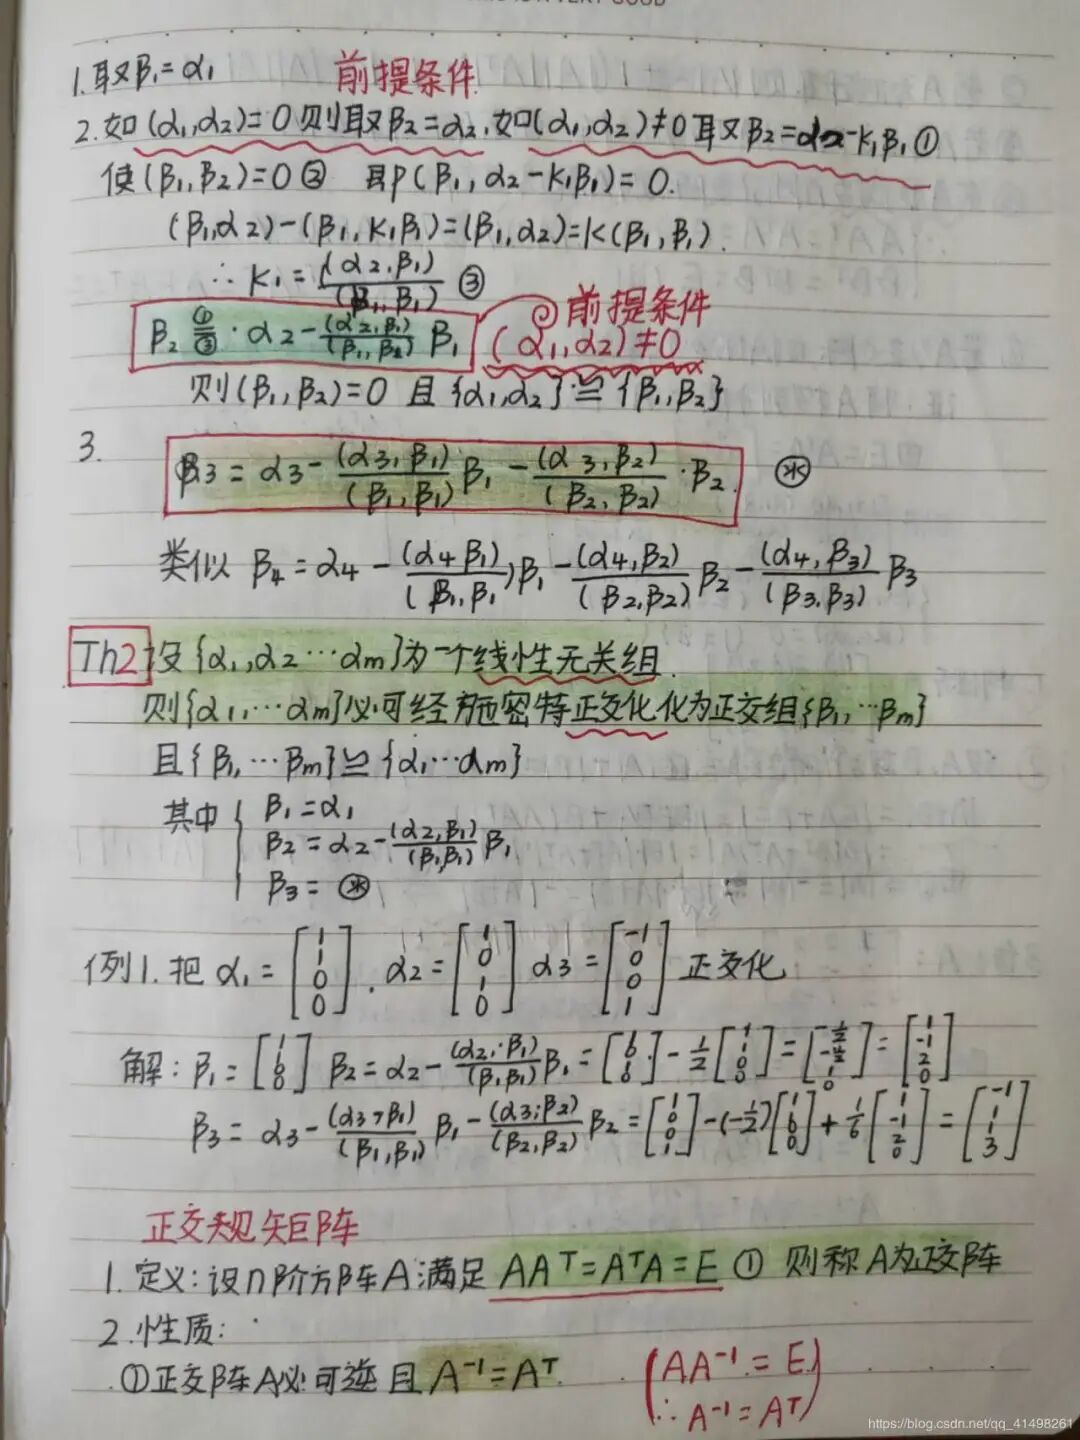 1. 取β₁=α₁ 前提条件
2. 如(α₁,α₂)=0则取β₂=α₂,如(α₁,α₂)≠0取β₂=α₂-k₁β₁①
使(β₁,β₂)=0② 即(β₁,α₂-k₁β₁)=0.
(β₁,α₂)-(β₁,k₁β₁)=(β₁,α₂)=k(β₁,β₁).
∴ k₁=(α₂,β₁)/(β₁,β₁) ③
β₂ = ① ③ · α₂-(α₂,β₁)/(β₁,β₂) β₁ 前提条件
(α₁,α₂)≠0
则(β₁,β₂)=0 且{α₁,α₂}≌{β₁,β₂}
3. β₃=α₃-(α₃,β₁)/(β₁,β₁) β₁-(α₃,β₂)/(β₂,β₂)·β₂. ※
类似 β₄=α₄-(α₄β₁)/(β₁,β₁) β₁-(α₄,β₂)/(β₂,β₂) β₂-(α₄,β₃)/(β₃,β₃) β₃
Th2 设{α₁,α₂…αm}为一个线性无关组.
则{α₁,…αm}必可经施密特正交化化为正交组{β₁,…βm}
且{β₁,…βm}≌{α₁…αm}
其中 { β₁=α₁
β₂=α₂-(α₂,β₁)/(β₁,β₁) β₁
β₃=※
例1. 把α₁=[1 1 0 0],α₂=[1 0 1 0] α₃=[-1 0 0 1] 正交化
解: β₁=[1 0] β₂=α₂-(α₂,β₁)/(β₁,β₁) β₁= - 1/2[1 1 0 0]=[1/2 -1/2 1 0]=[1 -1 2 0]
β₃=α₃-(α₃,β₁)/(β₁,β₁) β₁-(α₃,β₂)/(β₂,β₂) β₂= -(-1/2) +1/6[1 -1 2 0]=[-1 1 1 3]
正交规矩阵
1. 定义:设n阶方阵A满足 AAᵀ=AᵀA=E ① 则称A为正交阵
2. 性质:
①正交阵A必可逆且 A⁻¹=Aᵀ.
(AA⁻¹=E.
∴A⁻¹=Aᵀ)
https://blog.csdn.net/qq_41498261